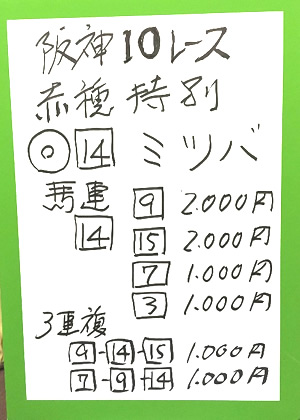 阪神10レース
赤穂特別
◎ 14 ミツバ
馬連 9 2.000円
14 15 2.000円
7 1.000円
3 1.000円
3連複
9-14-15 1.000円
7-9-14 1.000円